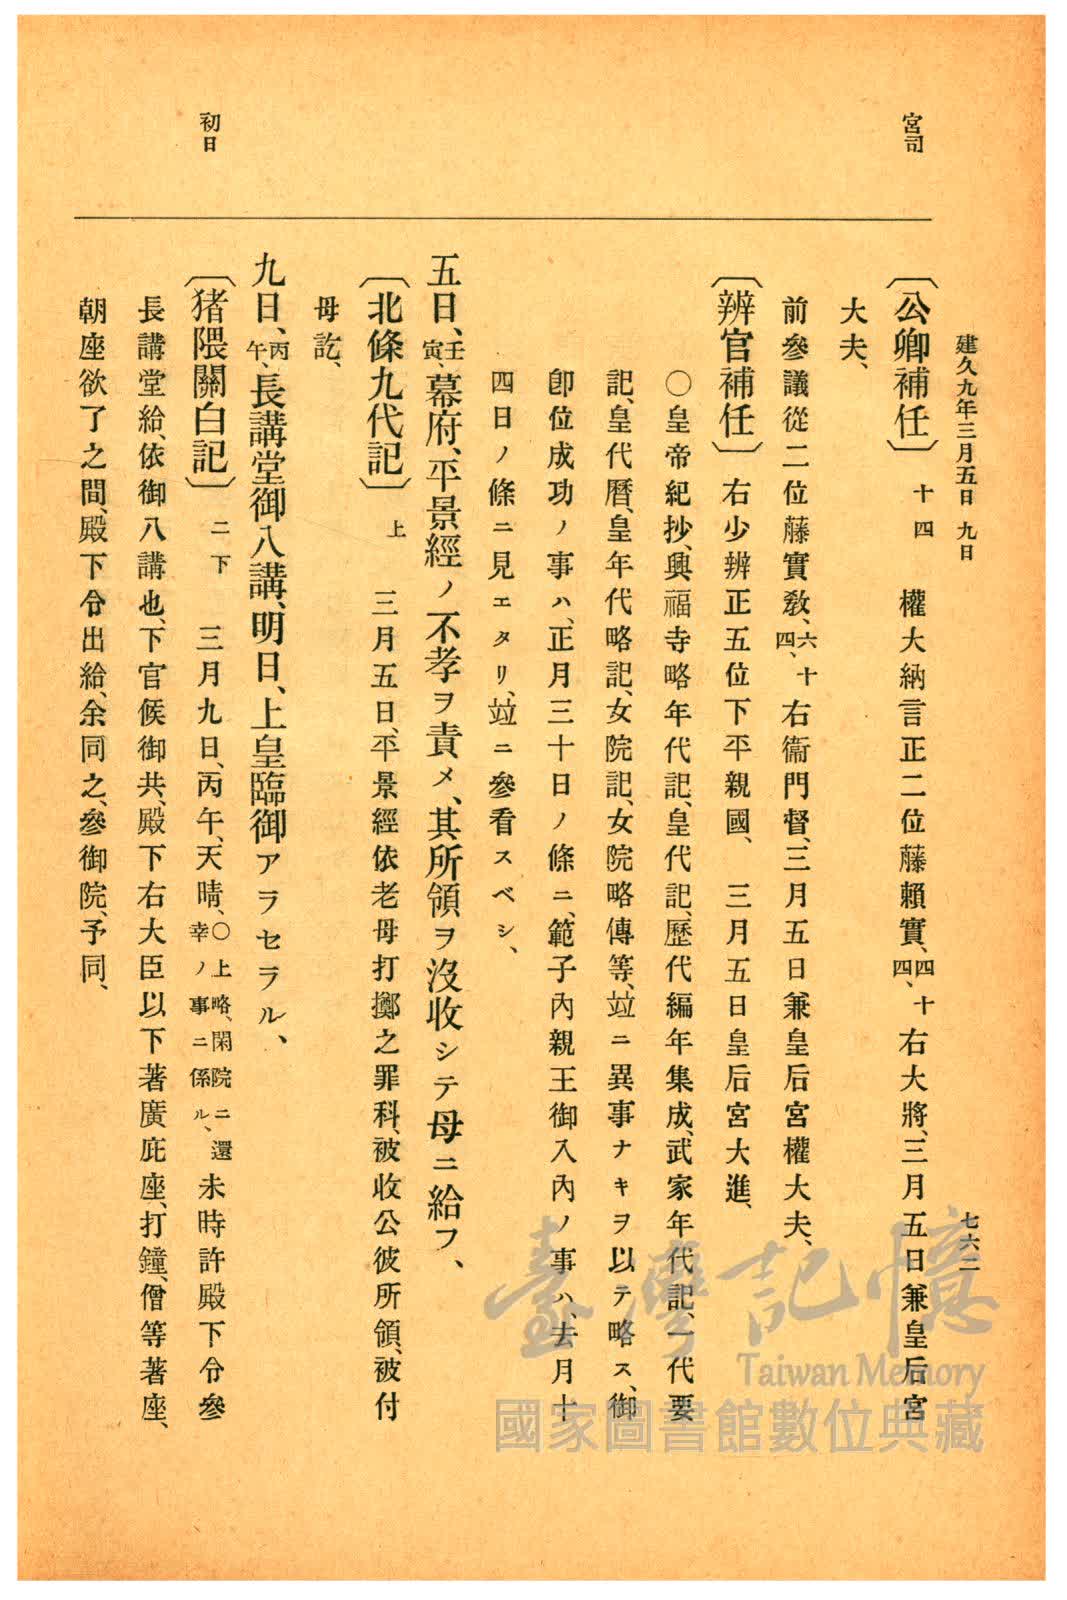 宮司
初日
建久九年三月五日 九日
七六二
〔公卿補任〕 十四 權大納言正二位藤賴實、四十四、右大將、三月五日兼皇后宮
大夫、
前參議從二位藤實敎、六十四、右衞門督、三月五日兼皇后宮權大夫、
〔辨官補任〕 右少辨正五位下平親國、 三月五日皇后宮大進、
〇皇帝紀抄、興福寺略年代記、皇代記、歷代編年集成、武家年代記、一代要
記、皇代曆、皇年代略記、女院記、女院略傳等、竝ニ異事ナキヲ以テ略ス、御
卽位成功ノ事ハ、正月三十日ノ條ニ、範子內親王御入內ノ事ハ、去月十
四日ノ條ニ見エタリ、竝ニ參看スベシ、
五日、壬寅、幕府、平景經ノ不孝ヲ責メ、其所領ヲ沒收シテ母ニ給フ、
〔北條九代記〕 上 三月五日、平景經依老母打擲之罪科、被收公彼所領、被付
母訖、
九日、丙午、長講堂御八講、明日、上皇臨御アラセラル、
〔猪隈關白記〕 二下 三月九日、丙午、天晴、〇上略、閑院ニ還幸ノ事ニ係ル、未時許殿下令參
長講堂給、依御八講也、下官候御共、殿下右大臣以下著廣庇座、打鐘、僧等著座、
朝座欲了之間、殿下令出給、余同之、參御院、予同、
臺灣記憶
Taiwan Memory
國家圖書館數位典藏